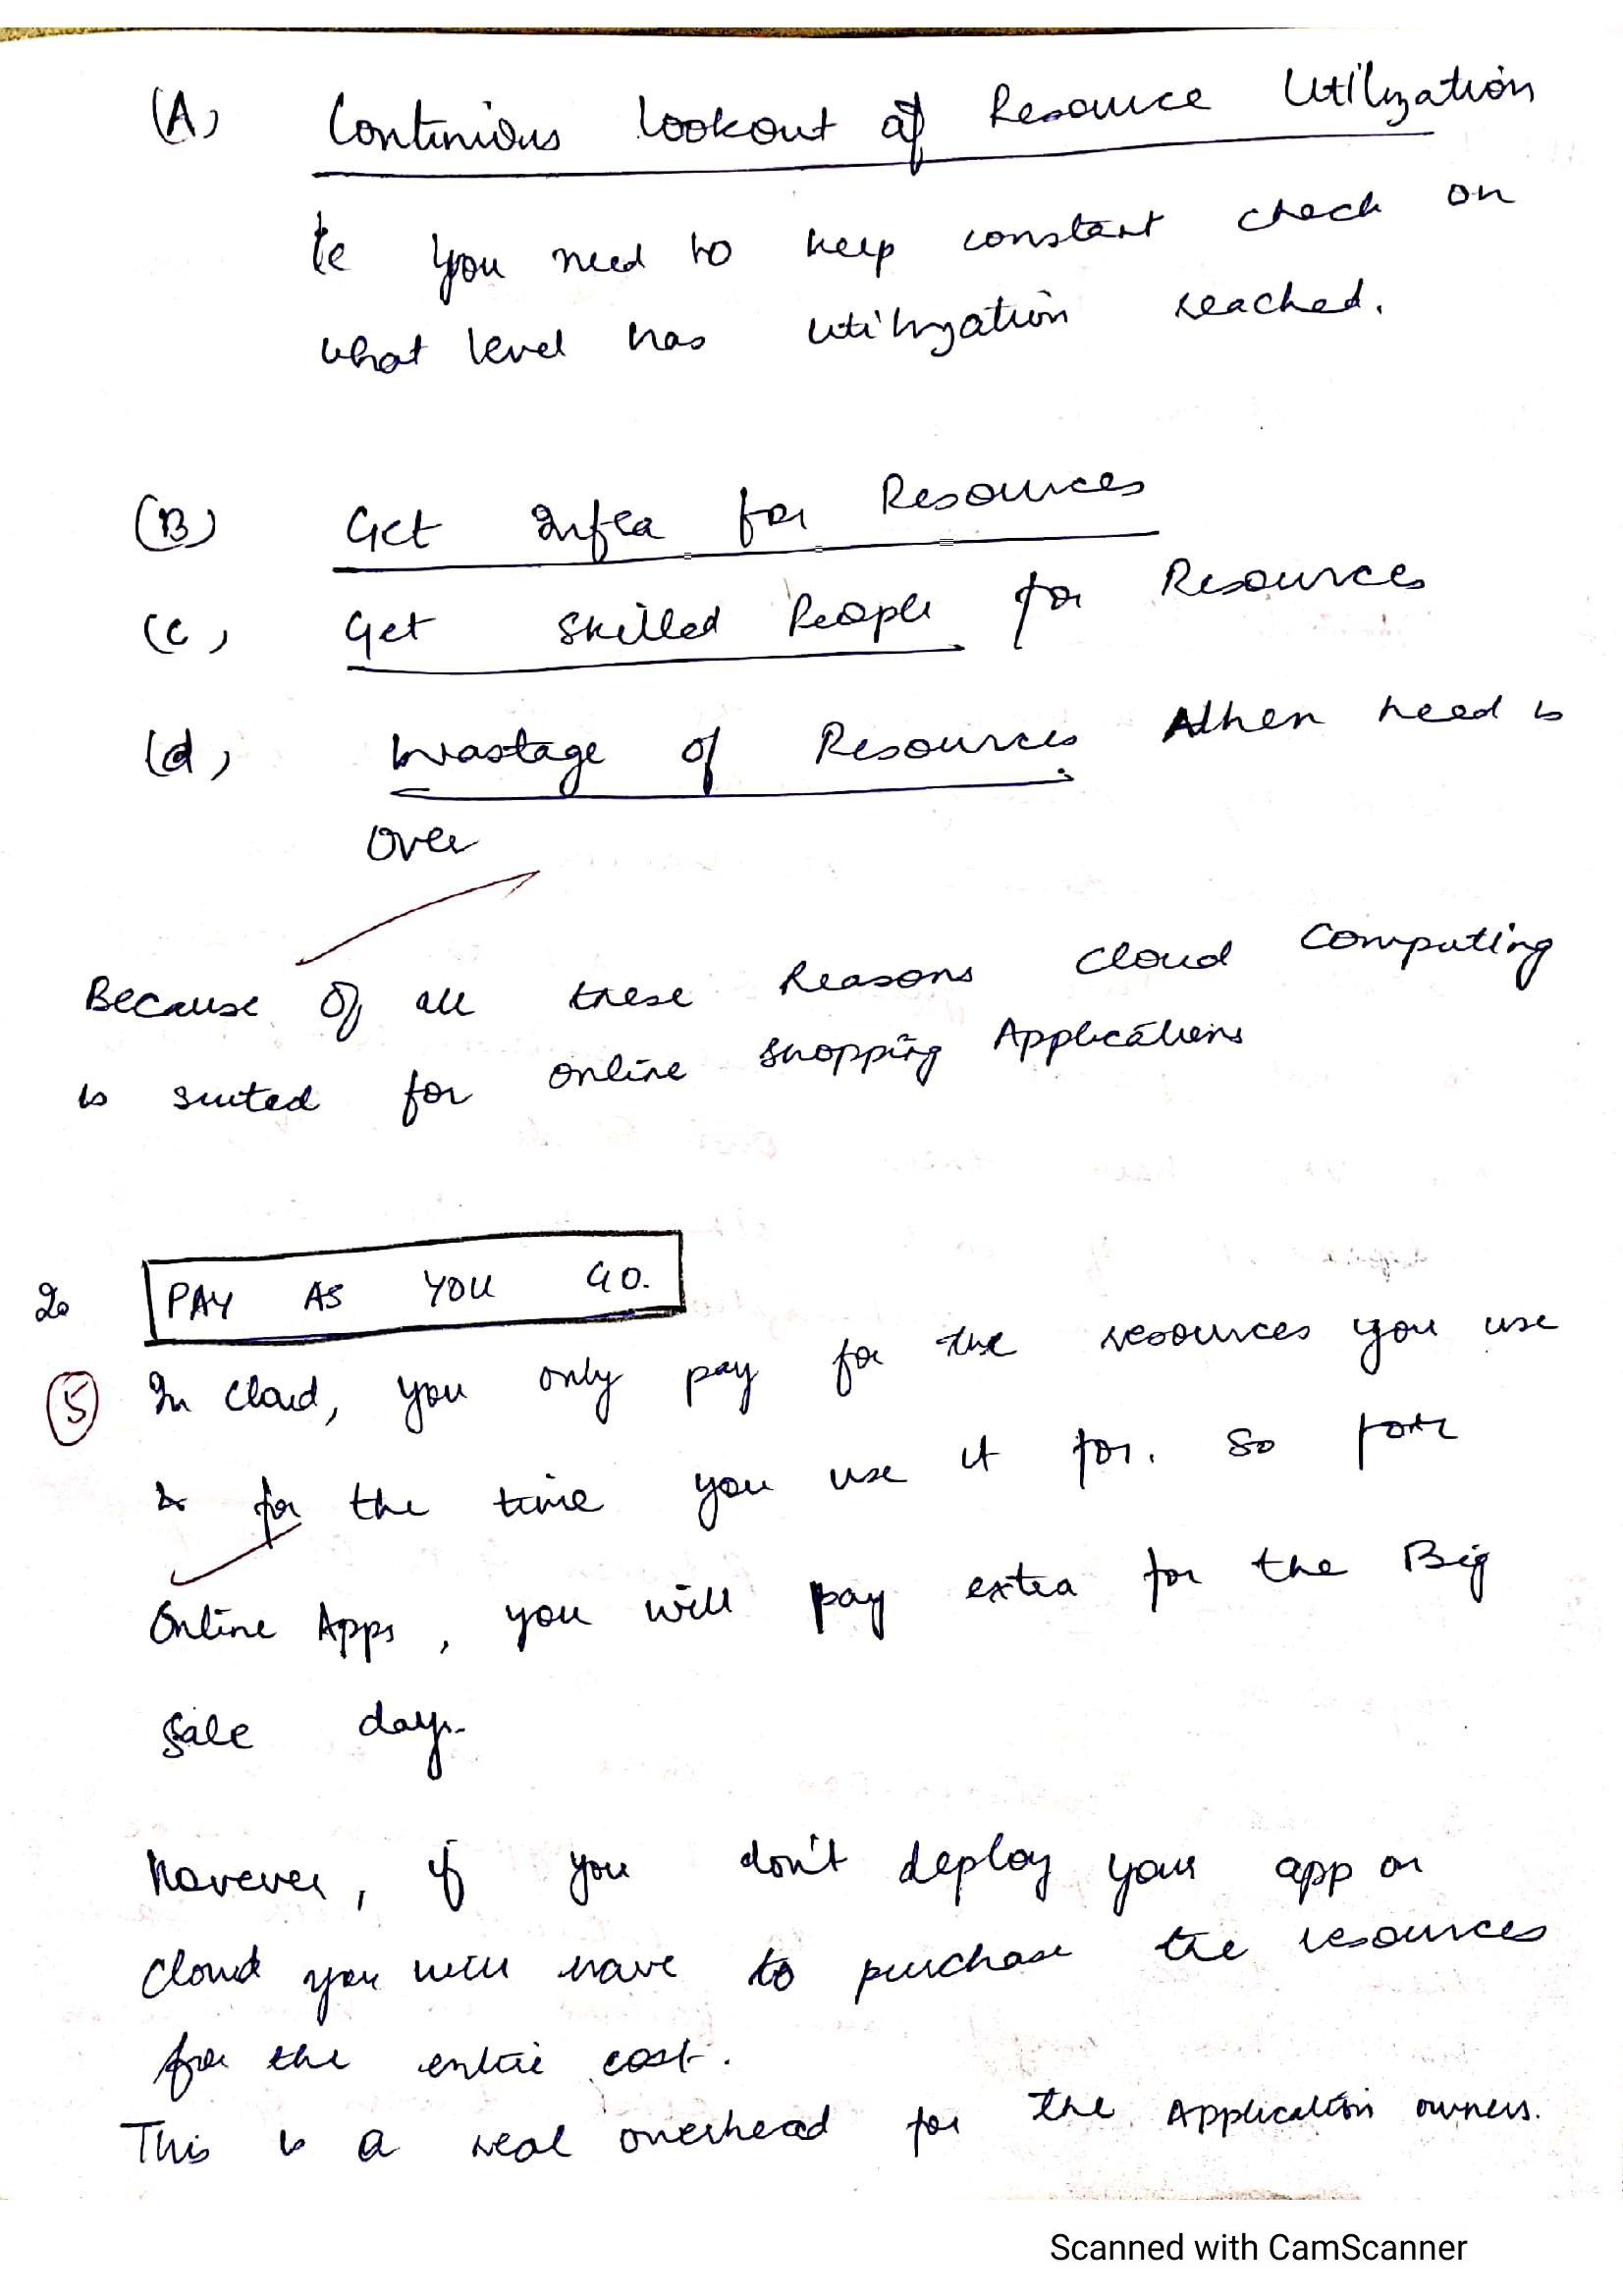 (A) Continious lookout of Resource Utilization
ie you need to keep constant check on
what level has utilization reached.
(B) Get Infra for Resources
(C) Get Skilled People for Resources
(d) Wastage of Resources when need is
over
Because of all these Reasons cloud computing
is suited for online shopping Applications
2. PAY AS YOU GO.
5 In cloud, you only pay for the resources you use
& for the time you use it for. So for
Online Apps, you will pay extra for the Big
Sale days.
However, if you don't deploy your app on
cloud you will have to purchase the resources
for the entire cost.
This is a real overhead for the Application owners.
Scanned with CamScanner